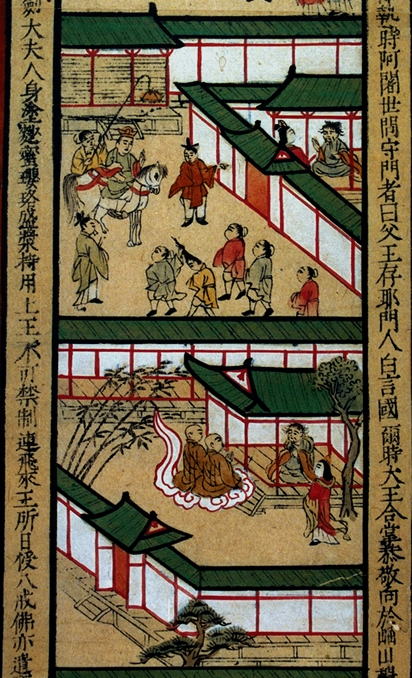 執 時阿闍世問守門者曰父王存耶門人白言國 爾時大王合掌恭敬向於崛山
劍 大夫人身塗麨蜜瓔珞盛漿持用上王不可禁制 連飛來王所日授八戒佛亦遣